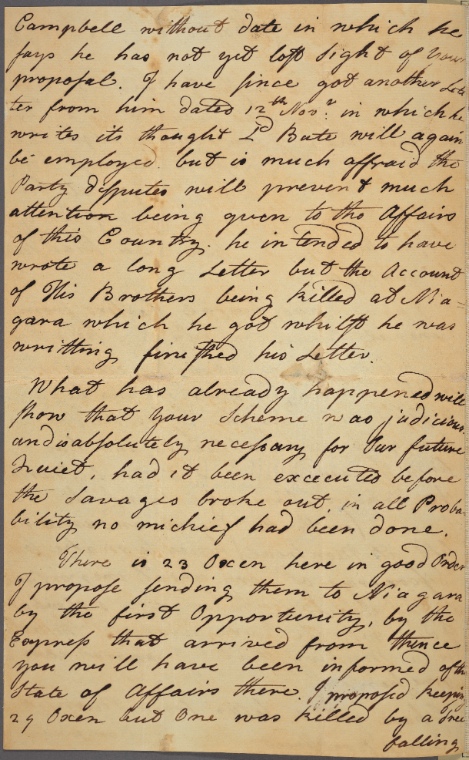 Campbell without date in which he
says he has not yet lost sight of your
proposal. I have since got another Let
ter from him dated 12th Novr. in which he
writes its thought Ld Bute will again
be employed, but is much affraid the
Party disputes will prevent much
attention being given to the Affairs
of this Country. he intended to have
wrote a long Letter but the Account
of His Brothers being killed at Nia-
gara which he got whilst he was
writting finished his Letter.
What has already happened will
show that your Scheme was judicious
and is absolutely necessary for our future
Quiet, had it been excecuted before
the Savages broke out, in all Proba-
bility no mischief had been done.
There is 23 Oxen here in good Order
I propose sending them to Niagara
by the first Opportunity, by the
Express that arrived from thence
you will have been informed of the
State of Affairs there. I proposed keeping
29 Oxen but One was killed by a tree
falling